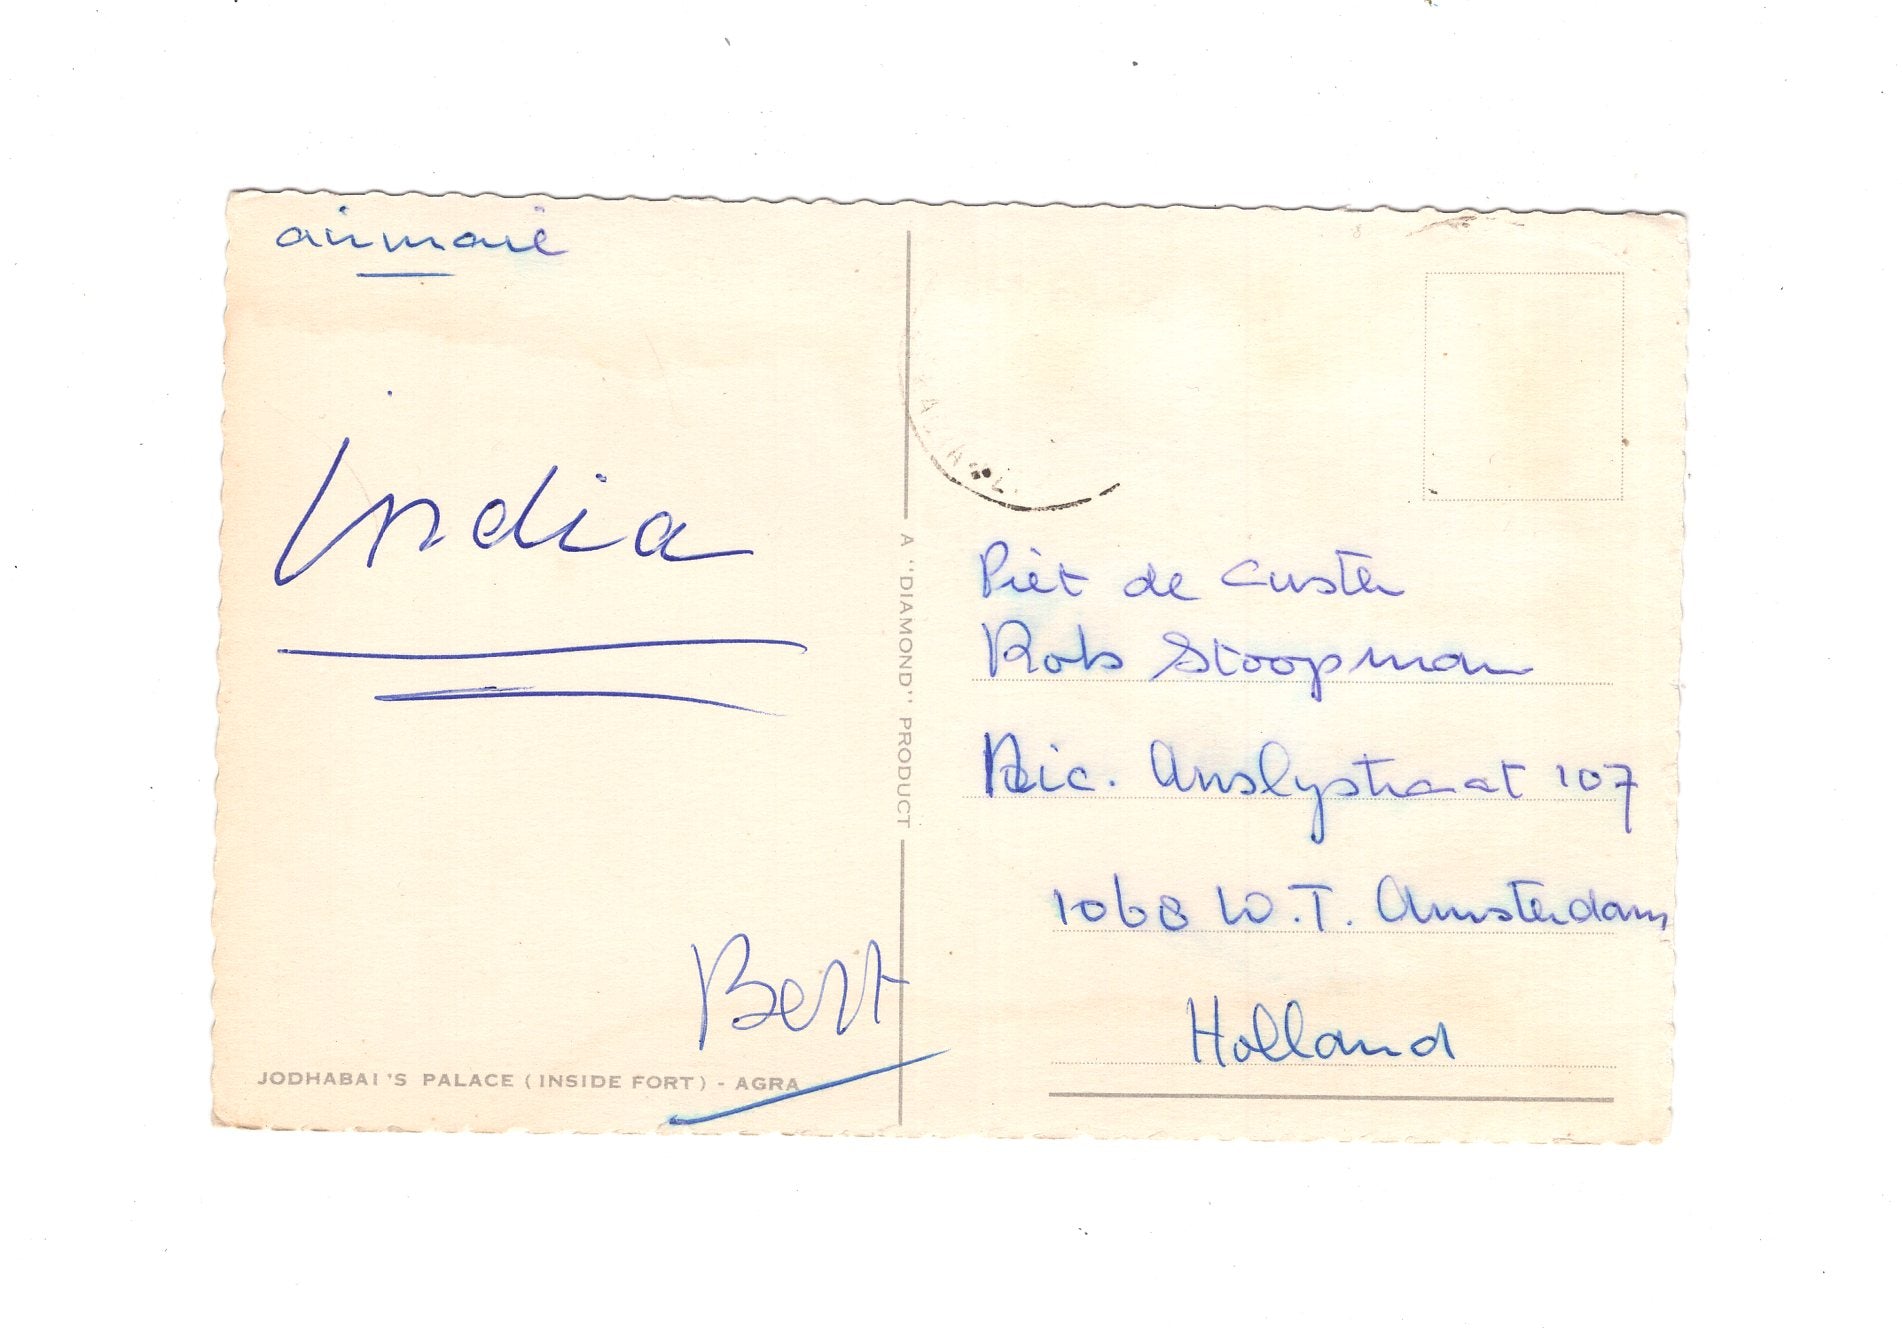 airmail
India
Bert
JODHABAI'S PALACE (INSIDE FORT) - AGRA
A "DIAMOND" PRODUCT
Piet de Custer
Rob Stoopman
Nic. Anslystraat 107
1068 W.T. Amsterdam
Holland